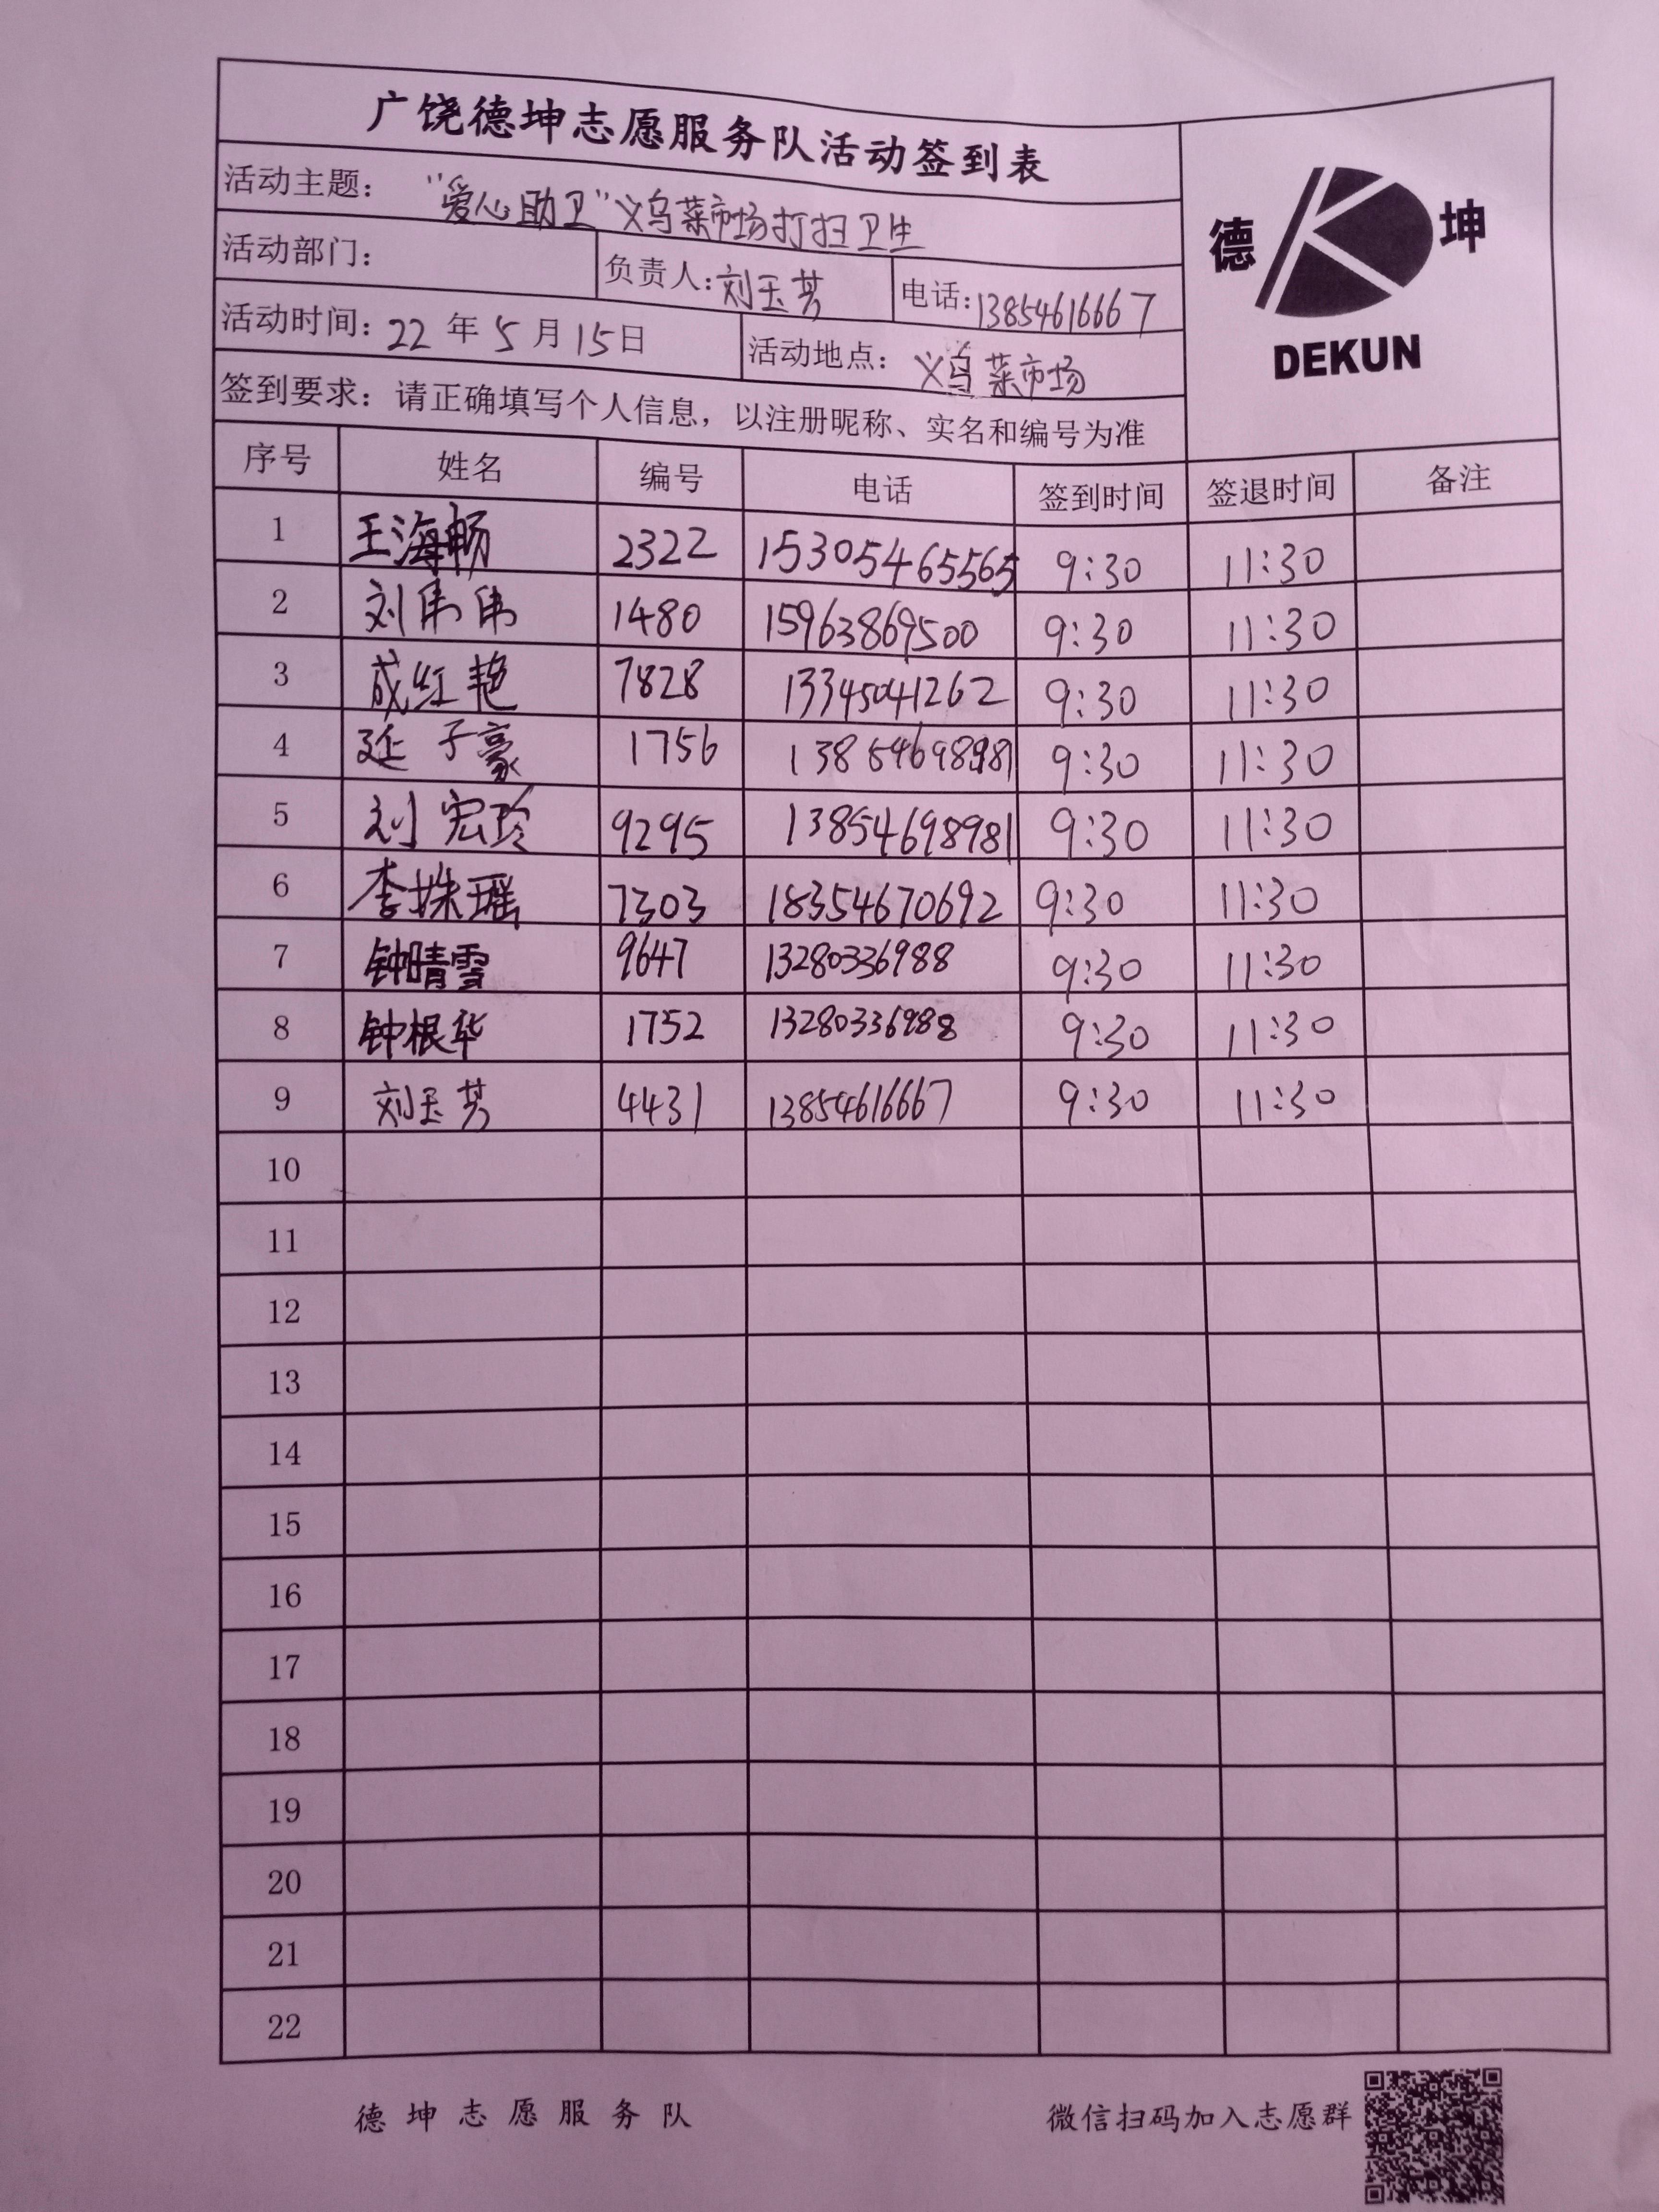 广饶德坤志愿服务队活动签到表
德 坤
DEKUN
活动主题： “爱心助卫”义乌菜市场打扫卫生
活动部门： 负责人：刘玉芳 电话：13854616667
活动时间：22年5月15日 活动地点：义乌菜市场
签到要求：请正确填写个人信息，以注册昵称、实名和编号为准
序号 姓名 编号 电话 签到时间 签退时间 备注
1 王海畅 2322 15305465565 9:30 11:30
2 刘伟伟 1480 15963869500 9:30 11:30
3 成红艳 7828 13345041262 9:30 11:30
4 延子豪 1756 13854698981 9:30 11:30
5 刘宏玲 9295 13854698981 9:30 11:30
6 李姝瑶 7303 18354670692 9:30 11:30
7 钟晴雪 9647 13280336988 9:30 11:30
8 钟根华 1752 13280336988 9:30 11:30
9 刘玉芳 4431 13854616667 9:30 11:30
10
11
12
13
14
15
16
17
18
19
20
21
22
德坤志愿服务队 微信扫码加入志愿群